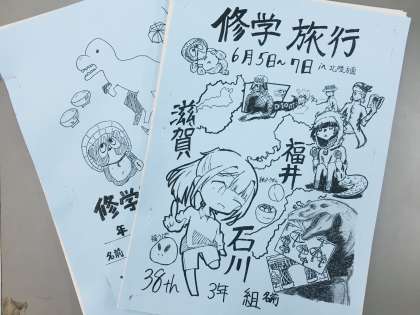 修学旅行
6月5日~7日 in 北陸方面
滋賀
福井
石川
38th
3年 組
修学
年
名前